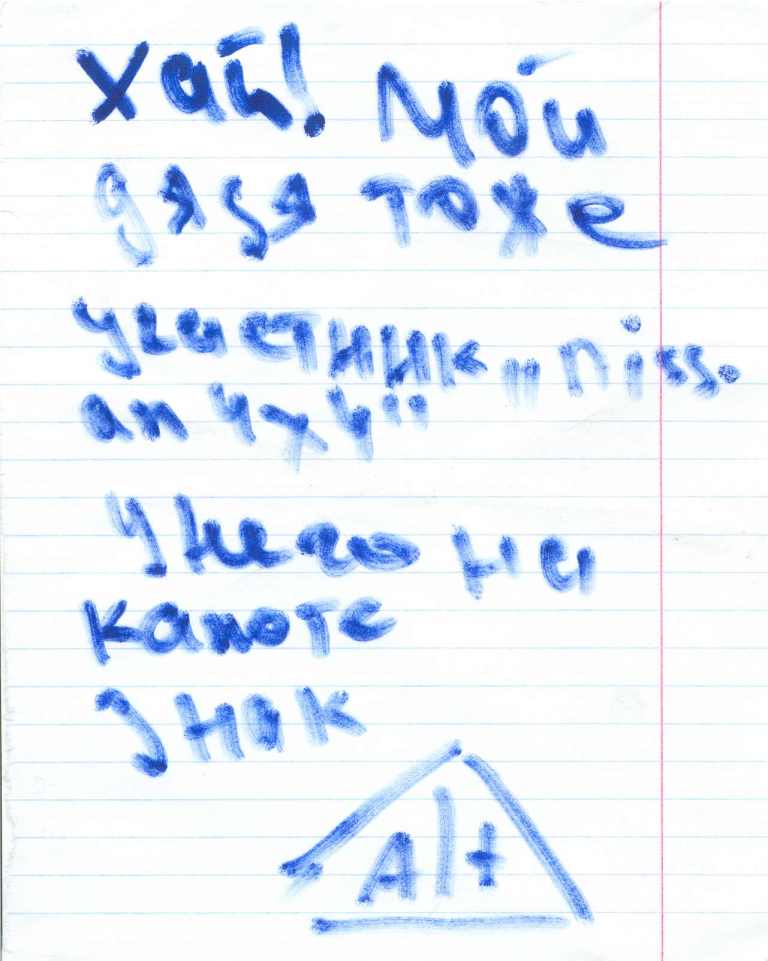 Хай! Мой
дядя тоже
участник "niss.
an 4x4"
У него на
капоте
знак
Alt